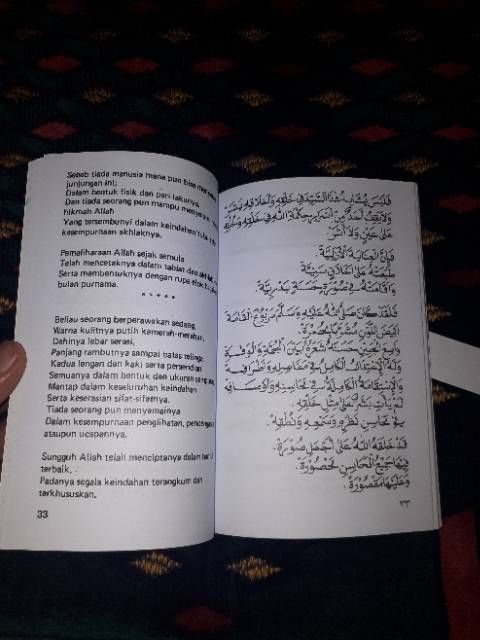 Sebab tiada manusia mana pun bisa
junjungan ini;
Dalam bentuk fisik dan peri lakunya.
Dan tiada seorang pun mampu
hikmah Allah
Yang tersembunyi dalam keindahan
kesempurnaan akhlaknya.
Pemeliharaan Allah sejak semula
Telah mencetaknya dalam tabiat dan
Serta membentuknya dengan rupa elok
bulan purnama.
* * * * *
Beliau seorang berperawakan sedang,
Warna kulitnya putih kemerah-merahan,
Dahinya lebar serasi,
Panjang rambutnya sampai batas telinga,
Kedua lengan dan kaki serta persendian
Semuanya dalam bentuk dan ukuran
Mantap dalam keseluruhan keindahan
Serta keserasian sifat-sifatnya.
Tiada seorang pun menyamainya
Dalam kesempurnaan penglihatan,
ataupun ucapannya.
Sungguh Allah telah menciptanya dalam
terbaik,
Padanya segala keindahan terangkum dan
terkhususkan.
33
فَلَيْسَ يُشَابِهُ هٰذَا السَّيِّدَ فِي خَلْقِهِ وَاَخْلَاقِهِ بَشَرٌ
وَلَا يَقِفُ اَحَدٌ مِنْ اَسْرَارِ حِكْمَةِ اللّٰهِ فِي خَلْقِهِ وَخُلُقِهِ
عَلَى عَيْنٍ وَلَا اَثَرٍ
فَاِنَّ الْعِنَايَةَ الْاَزَلِيَّةَ
طَبَعَتْهُ عَلَى اَخْلَاقٍ سَنِيَّةٍ
وَاَقَامَتْهُ فِي صُورَةٍ حَسَنَةٍ بَدْرِيَّةٍ
فَلَقَدْ كَانَ صَلَّى اللّٰهُ عَلَيْهِ وَسَلَّمَ مَرْبُوعَ الْقَامَةِ
اَبْيَضَ اللَّوْنِ مُشْرَبًا بِحُمْرَةٍ
وَاسِعَ الْجَبِينِ حَسَنَهُ شَعْرُهُ بَيْنَ الْجُمَّةِ وَالْوَفْرَةِ
وَلَهُ الْاِعْتِدَالُ الْكَامِلُ فِي مَفَاصِلِهِ وَاَطْرَافِهِ
وَالْاِسْتِقَامَةُ الْكَامِلَةُ فِي مَحَاسِنِهِ وَاَوْصَافِهِ
لَمْ يَأْتِ بَشَرٌ عَلَى مِثْلِ خَلْقِهِ
فِي مَحَاسِنِ نَظَرِهِ وَسَمْعِهِ وَنُطْقِهِ
قَدْ خَلَقَهُ اللّٰهُ عَلَى اَجْمَلِ صُورَةٍ
فِيهَا جَمِيعُ الْمَحَاسِنِ مَحْصُورَةٌ
وَعَلَيْهَا مَقْصُورَةٌ
٣٣